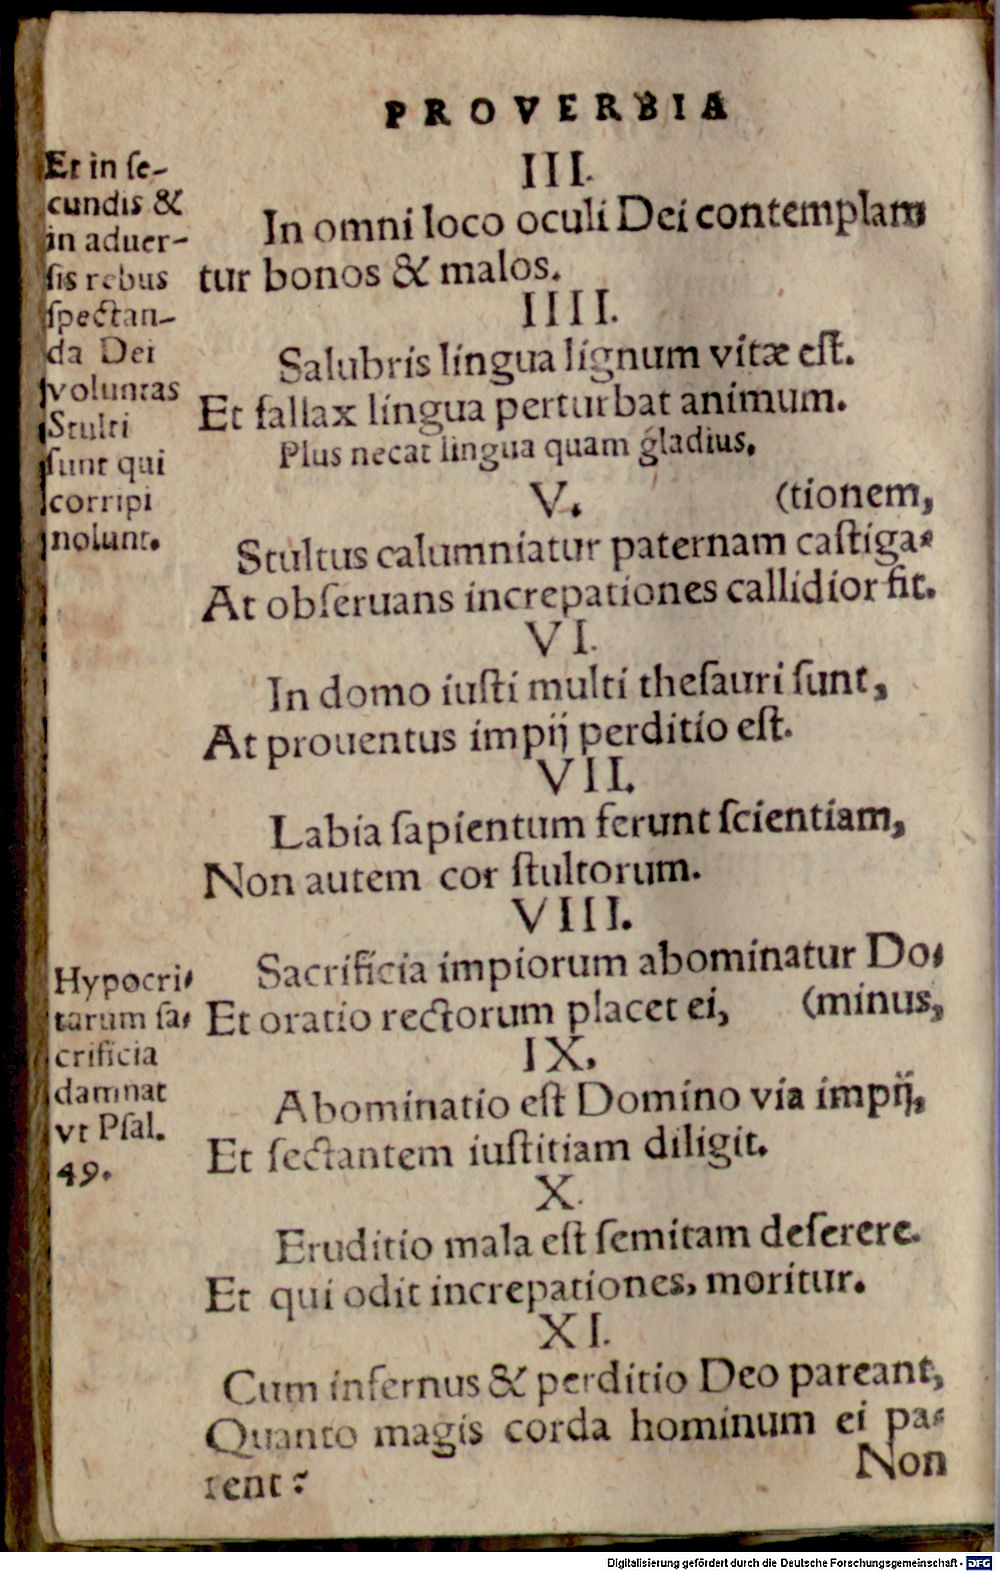 PROVERBIA
Et in ſe-
cundis &
in aduer-
ſis rebus
ſpectan-
da Dei
voluntas
Stulti
ſunt qui
corripi
nolunt.
III.
In omni loco oculi Dei contemplan
tur bonos & malos.
IIII.
Salubris lingua lignum vitæ eſt.
Et fallax lingua perturbat animum.
Plus necat lingua quam gladius.
V. (tionem,
Stultus calumniatur paternam caſtiga-
At obſeruans increpationes callidior fit.
VI.
In domo iuſti multi theſauri ſunt,
At prouentus impij perditio eſt.
VII.
Labia ſapientum ferunt ſcientiam,
Non autem cor ſtultorum.
VIII.
Hypocri-
tarum ſa-
crificia
damnat
vt Pſal.
49.
Sacrificia impiorum abominatur Do-
Et oratio rectorum placet ei, (minus,
IX.
Abominatio eſt Domino via impij,
Et ſectantem iuſtitiam diligit.
X.
Eruditio mala eſt ſemitam deſerere.
Et qui odit increpationes, moritur.
XI.
Cum infernus & perditio Deo pareant,
Quanto magis corda hominum ei pa-
rent?
Non
Digitalisierung gefördert durch die Deutsche Forschungsgemeinschaft - DFG